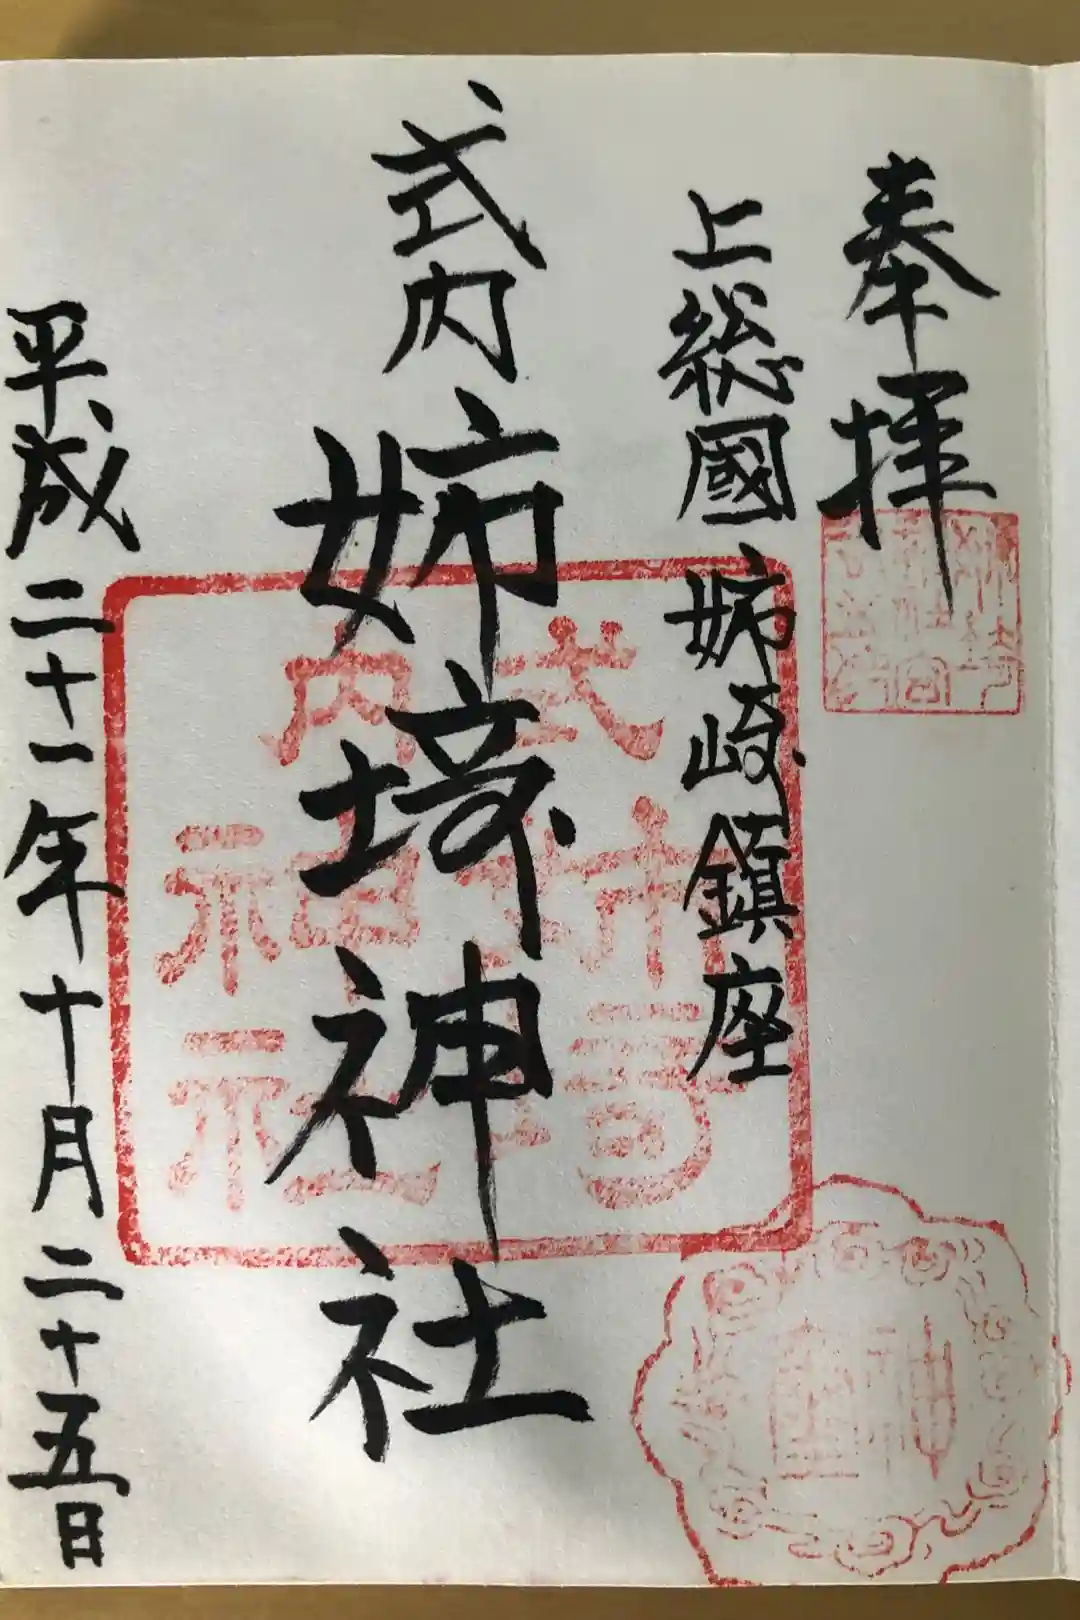 奉拝
上総國姉崎鎮座
式内姉埼神社
平成二十一年十月二十五日
式内
姉埼
神社